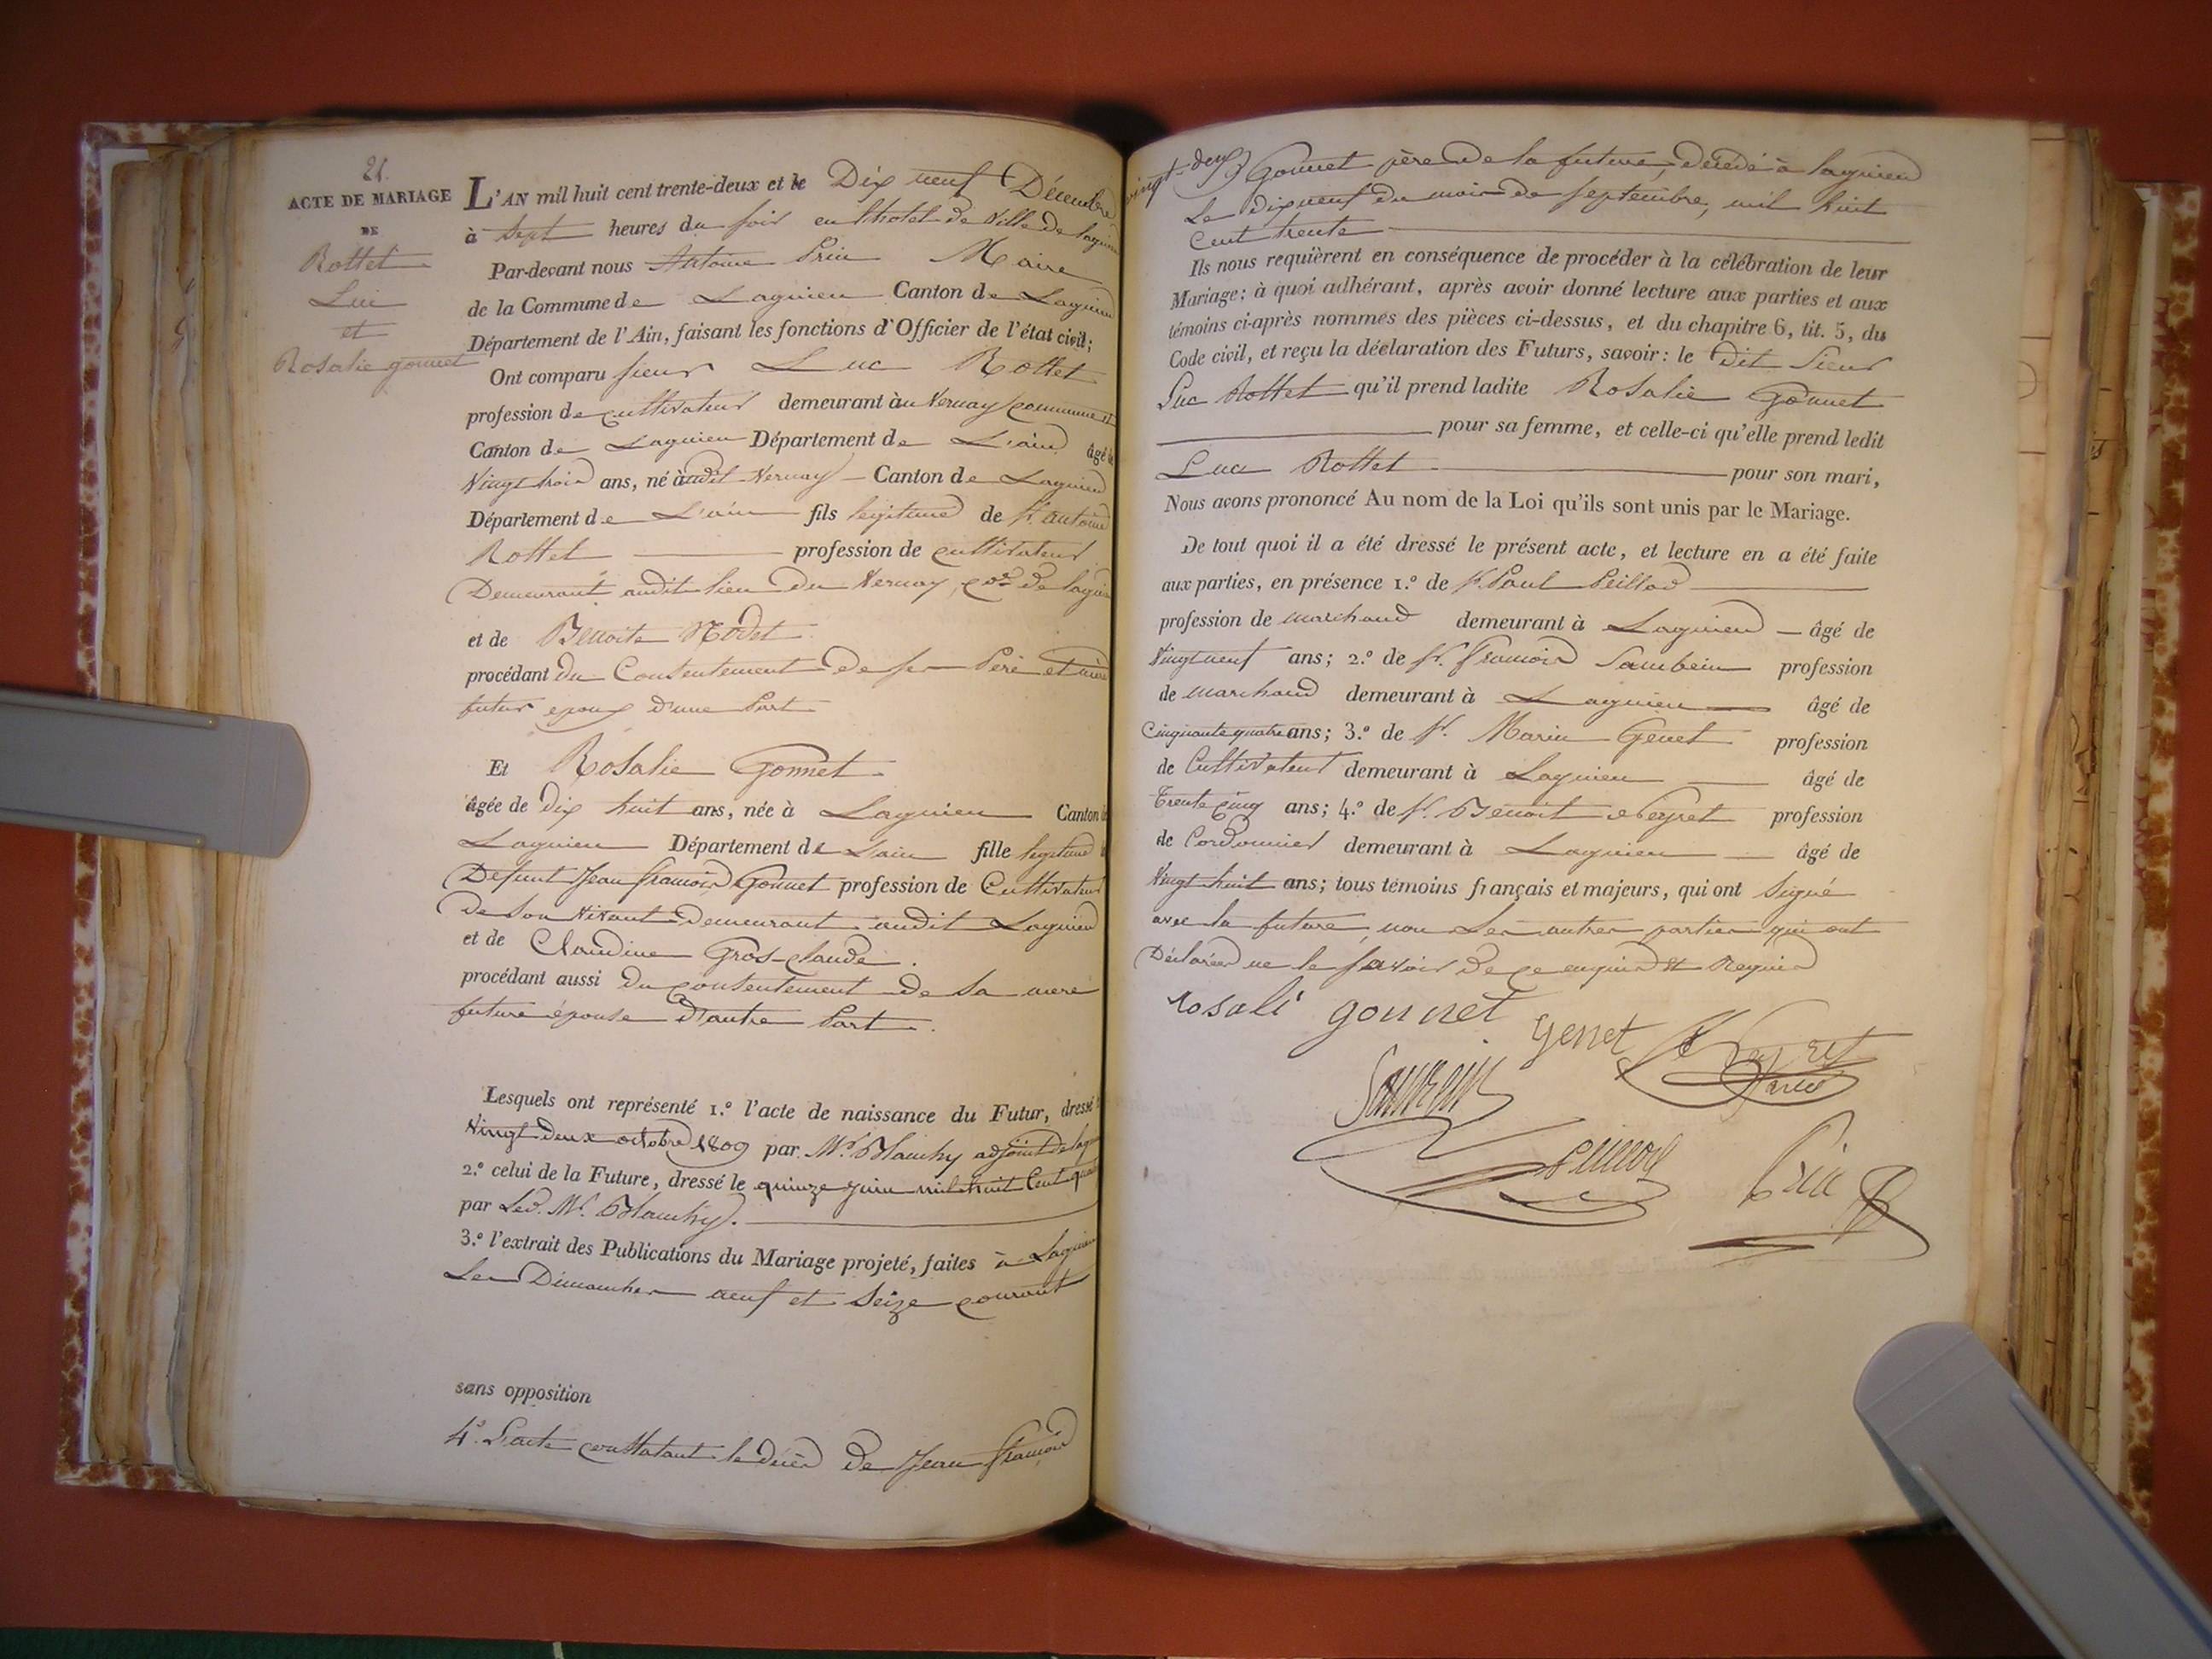 21.
ACTE DE MARIAGE
DE
Rottet
Luc
et
Rosalie gonnet
L'AN mil huit cent trente-deux et le Dix neuf Décembre
à Sept heures du soir en l'hotel de Ville de lagnieu
Par-devant nous Antoine Prin Maire
de la Commune de Lagnieu Canton de Lagnieu
Département de l'Ain, faisant les fonctions d'Officier de l'état civil;
Ont comparu sieur Luc Rottet
profession de cultivateur demeurant àu Vernay commune et
Canton de Lagnieu Département de L'ain âgé de
Vingt trois ans, né àudit Vernay Canton de Lagnieu
Département de L'ain fils legitime de Sr. antoine
Rottet profession de cultivateur
Demeurant audit lieu du Vernay, Cne de lagnieu
et de Benoite Rodet
procédant du Consentement de ses Père et mère
futur epoux d'une Part
Et Rosalie Gonnet
âgée de dix huit ans, née à Lagnieu Canton de
Lagnieu Département de L'ain fille legitime de
Defunt Jean françois Gonnet profession de Cultivateur
de Son Vivant demeurant audit Lagnieu
et de Claudine Gros-claude.
procédant aussi du consentement de Sa mere
future épouse d'autre Part.
Lesquels ont représenté 1.º l'acte de naissance du Futur, dressé le
Vingt deux octobre 1809 par Mr. Blanchy adjoint de lagnieu
2.º celui de la Future, dressé le quinze juin mil huit Cent quatorze
par Led. Mr. Blanchy.
3.º l'extrait des Publications du Mariage projeté, faites à Lagnieu
Les Dimanches neuf et Seize courant
sans opposition
4º. L'acte constatant le décès de Jean françois
vingt-deux Gonnet père de la future, décédé à lagnieu
Le dix neuf du mois de septembre, mil huit
Cent trente
Ils nous requièrent en conséquence de procéder à la célébration de leur
Mariage: à quoi adhérant, après avoir donné lecture aux parties et aux
témoins ci-après nommés des pièces ci-dessus, et du chapitre 6, tit. 5, du
Code civil, et reçu la déclaration des Futurs, savoir: le Dit Sieur
Luc Rottet qu'il prend ladite Rosalie Gonnet
pour sa femme, et celle-ci qu'elle prend ledit
Luc Rottet pour son mari,
Nous avons prononcé Au nom de la Loi qu'ils sont unis par le Mariage.
De tout quoi il a été dressé le présent acte, et lecture en a été faite
aux parties, en présence 1.º de Sr. Paul Peillod
profession de marchand demeurant à Lagnieu âgé de
Vingt neuf ans; 2.º de Sr. François Sambein profession
de marchand demeurant à Lagnieu âgé de
Cinquante quatre ans; 3.º de Sr. Marin Genet profession
de Cultivateur demeurant à Lagnieu âgé de
Trente cinq ans; 4.º de Sr. Benoit Neyret profession
de Cordonnier demeurant à Lagnieu âgé de
Vingt huit ans; tous témoins français et majeurs, qui ont Signé
avec la future, non Les autres parties qui ont
Déclarées ne le savoir de ce enquis et Requis
rosali gonnet
genet
Neyret
Peillod
Prin